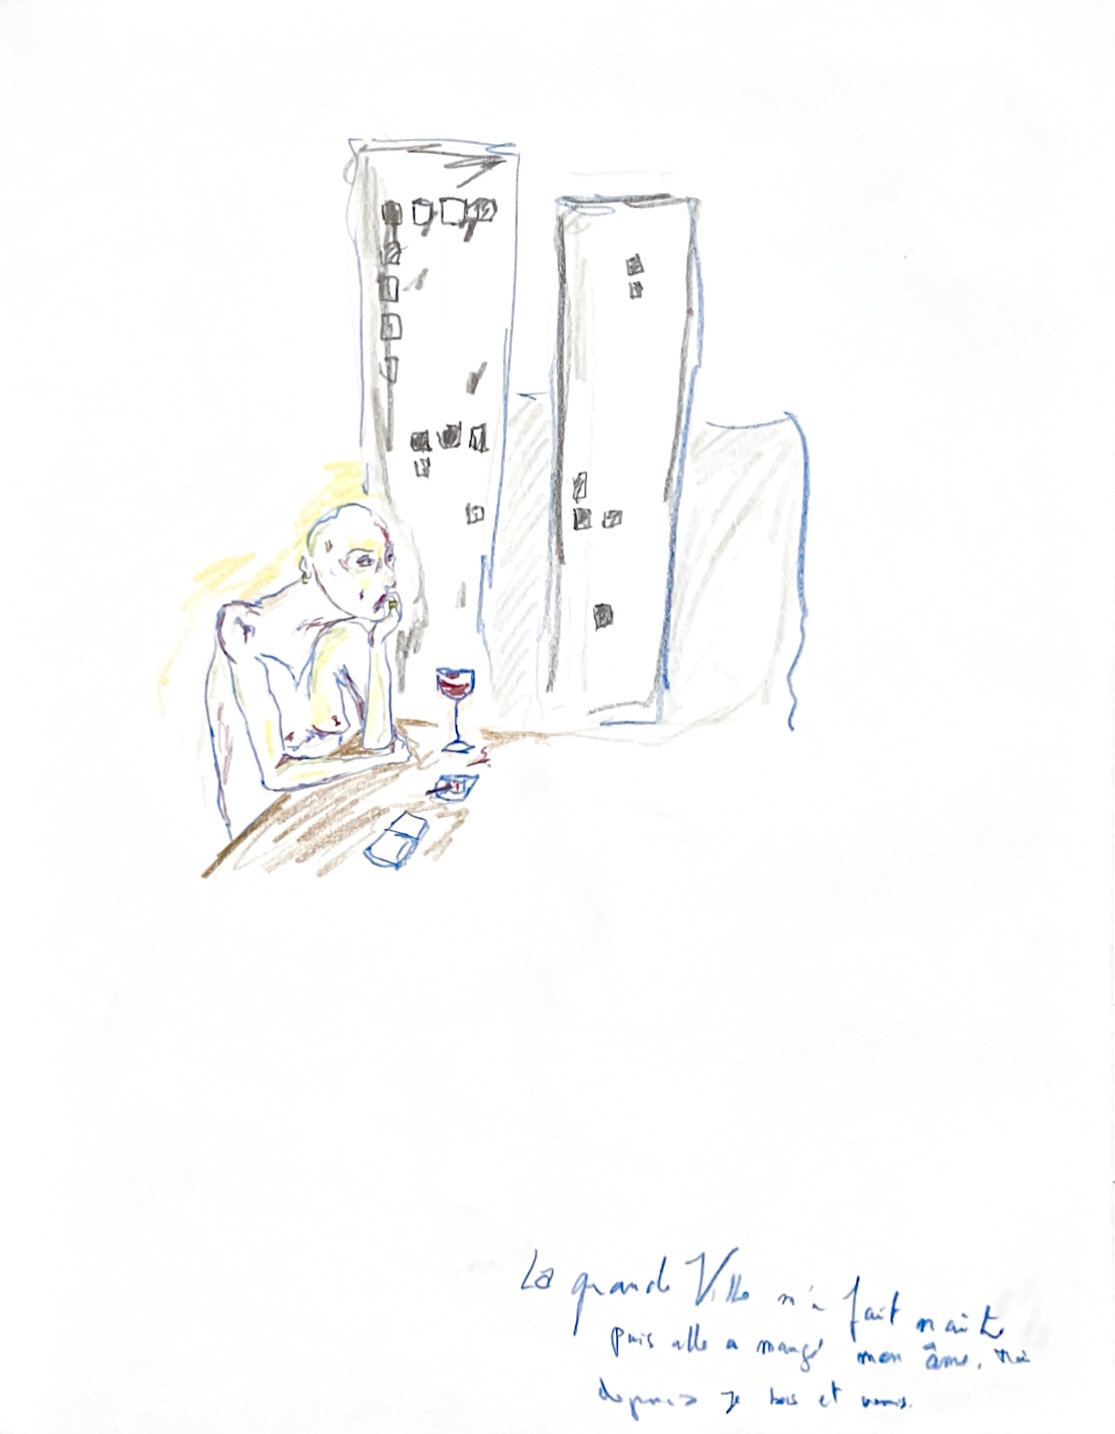 La grande Ville m'a fait naître
puis elle a mangé mon âme. Moi
depuis je bois et vomis.